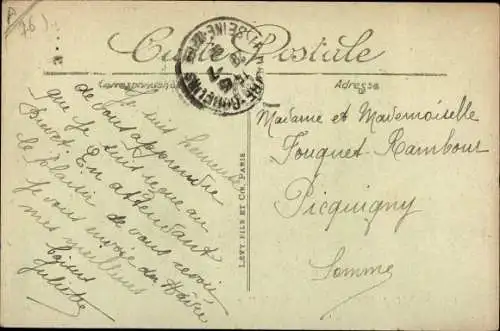 Carte Postale
Correspondance
Adresse
Je suis heureuse
de vous apprendre
que je suis reçue au
brevet. En attendant
le plaisir de vous revoir
je vous envoie du Hâvre
mes meilleurs
baisers
Juliette
LEVY FILS ET Cie, PARIS
Madame et Mademoiselle
Fouquet-Rambour
Picquigny
Somme